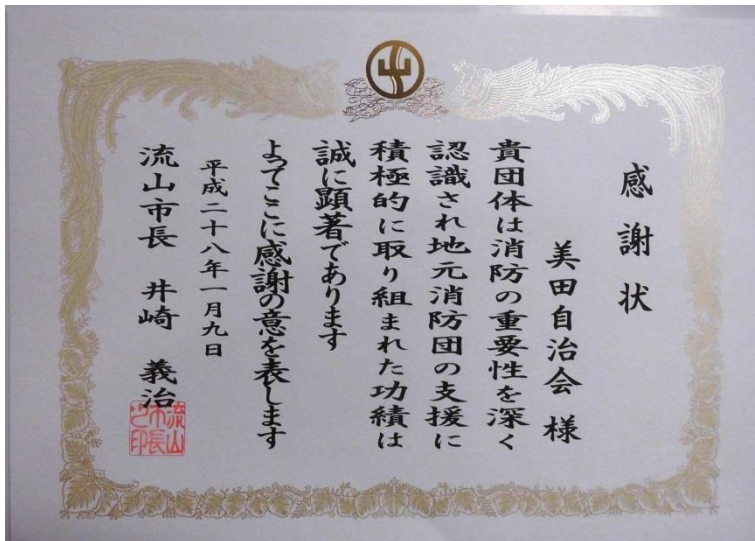 感謝状
美田自治会 様
貴団体は消防の重要性を深く
認識され地元消防団の支援に
積極的に取り組まれた功績は
誠に顕著であります
よってここに感謝の意を表します
平成二十八年一月九日
流山市長 井崎 義治
流山
市長
之印